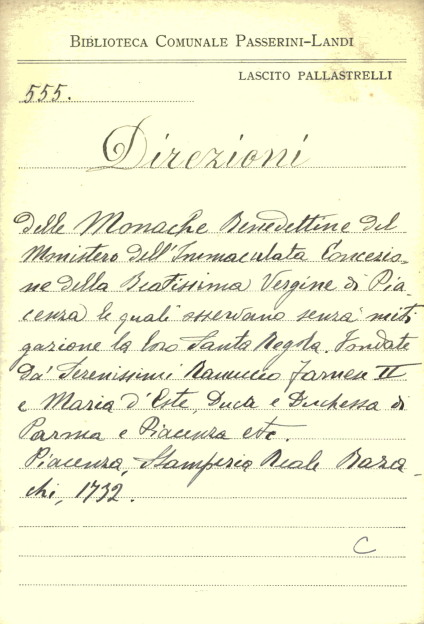 BIBLIOTECA COMUNALE PASSERINI-LANDI
LASCITO PALLASTRELLI
555.
Direzioni
delle Monache Benedettine del
Monistero dell'Immacolata Concezio-
ne della Beatissima Vergine di Pia-
cenza le quali osservano senza miti
gazione la loro Santa Regola. Fondate
da' Serenissimi Ranuccio Farnese II
e Maria d'Este, Duca e Duchessa di
Parma e Piacenza etc.
Piacenza, Stamperia Reale Baza-
chi, 1732.
C